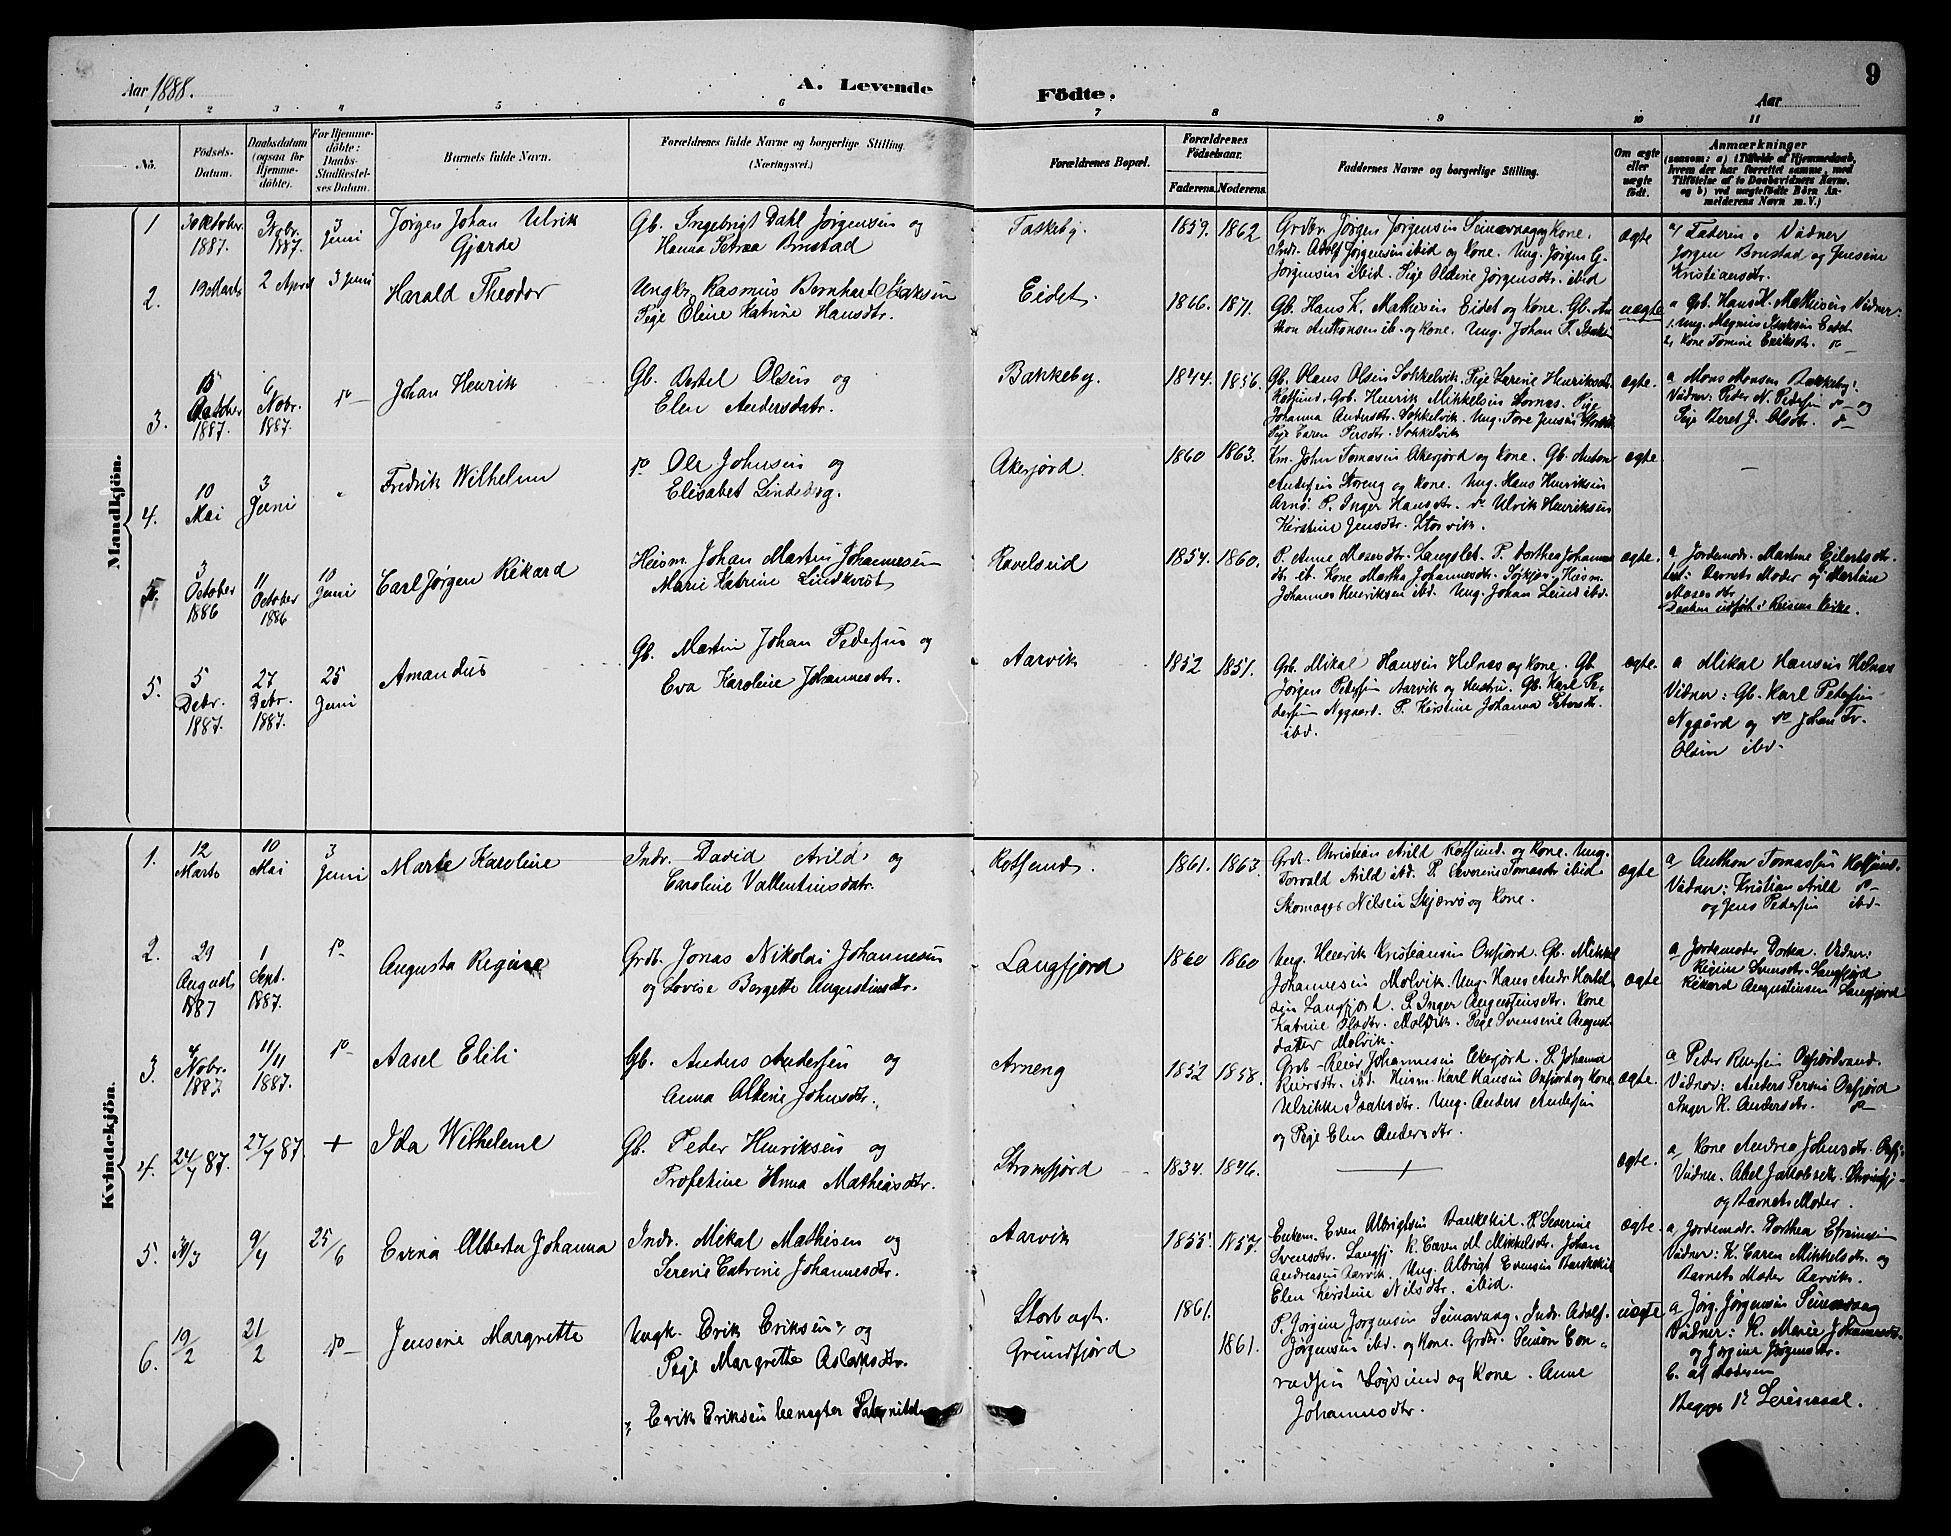 Aar 1888.
A. Levende
Födte.
Aar
9
1 2 3 4 5 6 7 8 9 10 11
No.
Födsels-
Datum.
Daabsdatum
(ogsaa for
Hjemme-
döbte).
For Hjemme-
döbte:
Daabs-
Stadfæstel-
ses Datum.
Barnets fulde Navn.
Forældrenes fulde Navne og borgerlige Stilling.
(Næringsvei.)
Forældrenes Bopæl.
Forældrenes
Födselsaar.
Faderens. Moderens.
Faddernes Navne og borgerlige Stilling.
Om ægte
eller
uægte
födt.
Anmærkninger
(saasom: a) i Tilfælde af Hjemmedaab,
hvem der har forrettet samme, med
Tilföielse af to Daabsvidners Navne,
og b) ved uægtefödte Börn An-
melderens Navn m. V.)
Mandkjön.
1
1887.
Nobr.
1887.
3
Juni
Jørgen Johan Ulrik
Gjærde
Gb. Ingebrigt Dahl Jørgensen og
Hanna Petrea Bustad
Taskeby.
1859. 1862
Jørgen Jørgensen og Kone.
Indr. Adolf Jørgensen ibid og Kone. Ung. Jørgen G.
Jørgensen ibid. Pige Oldine Jørgensdtr. ibid
ægte
Faderen. Vidner
Jørgen Bustad og Jensine
Kristiansdtr.
2.
19 Marts
2 April
3 Juni
Harald Theodor
Ungkr. Rasmus Bernhart Isaksen
Pige Oleine Katrine Hansdtr.
Eidet.
1866. 1871.
Gb. Hans K. Mathisen Eidet og Kone. Gb. An-
thon Anthonsen ib. og Kone. Ung. Johan P. Isaksen
uægte
a Gb. Hans K. Mathisen Vidner:
1. Ung. Magnus Isaksen Eidet
2. Kone Tomine Eriksdtr. do
3.
15
October
1887.
6
Nobr.
1887.
do
Johan Henrik
Gb. Bertel Olsen og
Elen Andersdatr.
Bakkeby.
1844. 1856.
Gb. Olaus Olsen Sokkelvik. Pige Karine Henriksdtr.
Rotsund. Gb. Henrik Mikkelsen Pige
Johanna Andersdtr. Sokkelvik. Ung. Tore Jensen
Pige Karen Persdtr. Sokkelvik
ægte.
a Mons Monsen Bakkeby.
Vidner: Peder N. Pedersen do og
Pige Beret J. Olsdtr. do
4.
10
Mai
3
Juni
Fredrik Wilhelm
do Ole Johnsen og
Elisabet Lindeberg.
Akerjord.
1860 1863.
Km. John Tomasen Akerfjord og Kone. Gb. Anton
Andersen Storeng og Kone. Ung. Hans Henriksen
Arnø. P. Inger Hansdtr. do Ulrik Henriksen
Kirstine Jensdtr. Storvik.
ægte.
3
October
1886
11
October
1886
10
Juni
Carl Jørgen Rikard
Husm. Johan Martin Johannesen
Marie Katrine Lindkvist
Ravelseid
1854. 1860.
P. Anne Mosesdtr. Langslet. P. Dorthea Johannes
dtr. ib. Kone Martha Johannesdtr. Sørkjos. Husm.
Johannes Henriksen ibd. Ung. Johan Lund ibd.
ægte.
a Jordemodr. Martine Eilertsdtr.
test: Barnets Moder og Martine
Mosesdtr.
Daaben udført i Reisens Kirke.
5.
5
Debr.
1887.
27
Debr.
1887.
25
Juni
Amandus
Gb. Martin Johan Pedersen og
Eva Karoline Johannesdtr.
Aarvik
1852 1851.
Gb. Mikal Hansen Helnæs og Kone. Gb.
Jørgen Pedersen Aarvik og Hustru. Gb. Karl Pe-
dersen Nygaard. P. Kirstine Johanna Petersdtr.
ibd.
ægte.
a Mikal Hansen Helnæs
Vidner: Gb. Karl Pedersen
Nygård og do Johan Fr.
Olsen ibd.
Kvindekjön.
1.
12
Marts
10
Mai
3
Juni
Marie Karoline
Indr. David Arild og
Caroline Vallentinsdatr.
Rotsund.
1861. 1863.
Grdr. Christian Arild Rotsund og Kone. Ung.
Torvald Arild ibd. P. Severine Tomasdtr ibid
Skomager Nilsen Skjærvø og Kone.
ægte
a Anthon Tomassen Rotsund.
Vidner: Kristian Arild do
og Jens Pedersen ibd
2.
29
August
1887
1
Sept.
1887.
do
Augusta Regine
Grdb. Jonas Nikolai Johannesen
og Lovise Bergette Augustinsdtr.
Langfjord
1860 1860
Ung. Henrik Kristiansen Oxfjord. Gb. Mikkel
Johannesen Molvik. Ung. Hans Andr.
Langfjord. P. Inger Augustinsdtr. Kone
Katrine Molvik. Pige August-
datter Molvik.
ægte
a Jordemoder Dorkea Vidner:
Regine Svensdtr. Langfjord
Rikard Augustinsen Langfjord
3.
4
Nobr.
1887.
11/11
1887.
do
Aasel Elili
Gb. Anders Andersen og
Anna Aldine Johnsdtr.
Arneng
1852 1858.
Grb. Reier Johannesen Akerfjord. P. Johanna
Reiersdtr. ibd. Husm. Karl Hansen Oxfjord og Kone
Ulrikke Isaksdtr. Ung. Anders Andersen
og Pige Elen Andersdtr.
ægte.
a Peder Oxfjordvand.
Vidner: Anders Persen Oxfjord
Inger K. Andersdtr. do
4.
24/7 87.
27/7 87.
+
Ida Wilhelene
Gb. Peder Henriksen og
Profetine Anna Mathiasdtr.
Strømfjord
1834. 1846.
+
ægte.
a Kone Andrea Johnsdtr.
Vidner. Abel Jakobsdtr.
og Barnets Moder
5.
31/3
9/4
25/6
Evina Alberta Johanna
Indr. Mikal Mathisen og
Serene Catrine Johannesdtr.
Aarvik
1855. 1857.
Enkem. Even Albrigtsen P. Severine
Svensdtr. Langfj. K. Caren M. Mikkelsdtr. Johan
Andreasen Aarvik. Ung. Albrigt Evensen
Elen Kirstine Nilsdtr. ibid.
ægte.
a Jordemdr. Dorthea Efraimsen
Vidner: K. Caren Mikkelsdtr. og
Barnets Moder Aarvik.
6.
19/2
21/2
do
Jensine Margrette
Ungk. Erik Eriksen og
Pige Margrette Aslaksdtr.
" Erik Eriksen benægter
Storbugt.
Grundfjord
1861.
1861.
P. Jorgine Jørgensen Indr. Adolf
Jørgensen ibd. og Kone. Grdr. Simon Con-
radsen Løgsund og Kone. Anne
Johannesdtr.
uægte
a Jørg. Jørgensen
Vidner: K. Marie Johannesdtr.
og Jorgine Jørgensdtr.
b. af Moderen
Begge